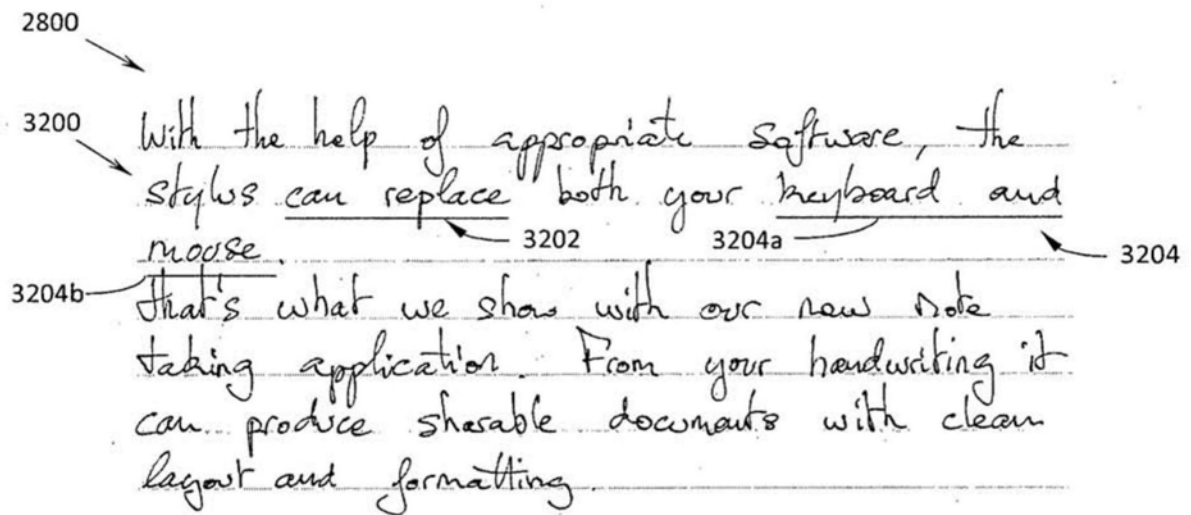 2800
With the help of appropriate software, the
3200
stylus can replace both your keyboard and
3202
3204a
mouse.
3204
3204b
that's what we show with our new note
taking application. From your handwriting it
can produce sharable documents with clean
layout and formatting.